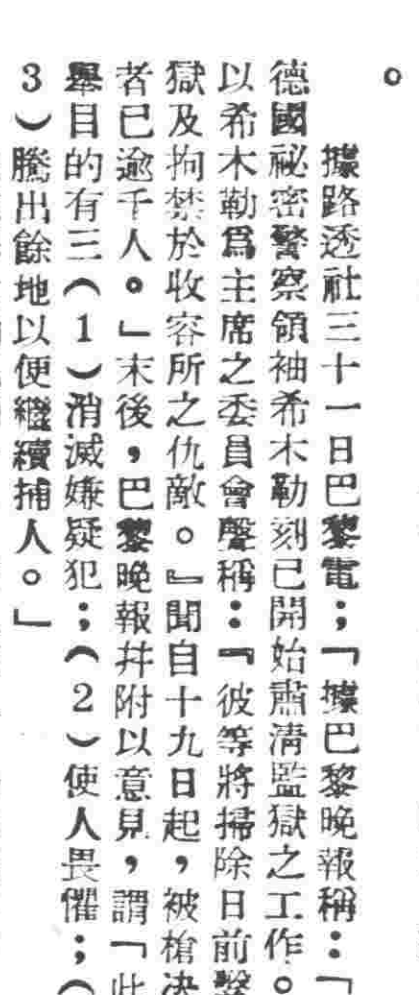 。
據路透社三十一日巴黎電；「據巴黎晚報稱：「
德國祕密警察領袖希木勒刻已開始肅清監獄之工作。
以希木勒爲主席之委員會聲稱：『彼等將掃除日前繫
獄及拘禁於收容所之仇敵。』聞自十九日起，被槍决
者已逾千人。」末後，巴黎晚報幷附以意見，謂「此
舉目的有三（1）消滅嫌疑犯；（2）使人畏懼；（
3）騰出餘地以便繼續捕人。」